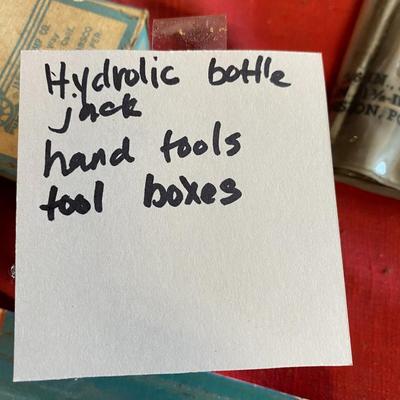 Hydrolic bottle
jack
hand tools
tool boxes